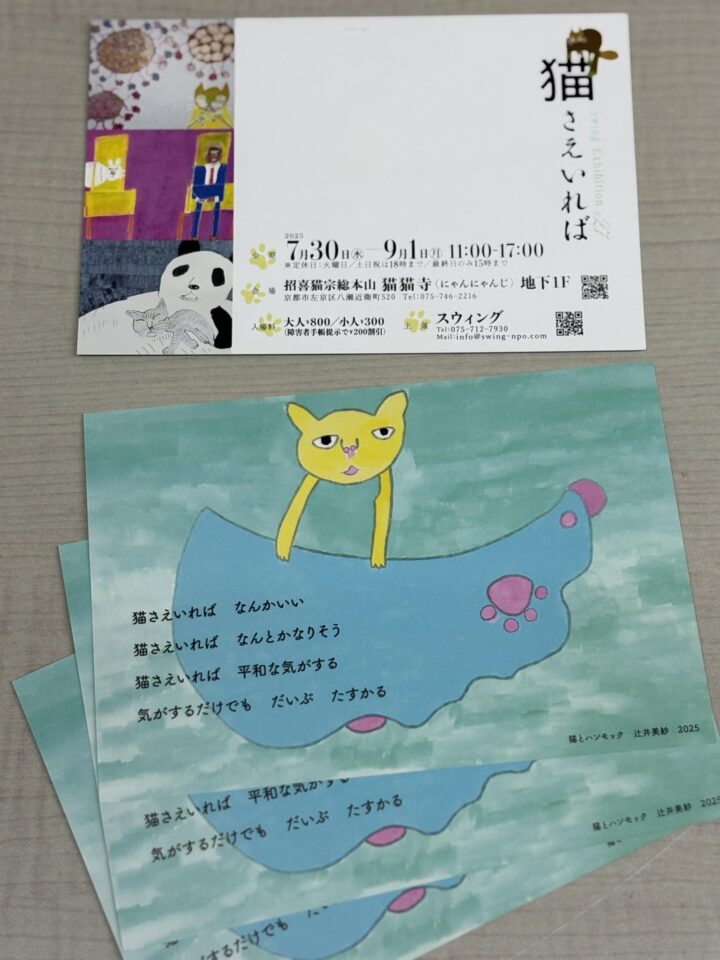 猫さえいれば
Swing Exhibition #27
会期
2025
7月30日㊌―9月1日㊊ 11:00-17:00
※定休日:火曜日/土日祝は18時まで/最終日のみ15時まで
会場 招喜猫宗総本山 猫猫寺(にゃんにゃんじ)地下1F
京都市左京区八瀬近衛町520 Tel:075-746-2216
入場料 大人¥800/小人¥300
(障害者手帳提示で¥200割引)
主催 スウィング
Tel:075-712-7930
Mail:info@swing-npo.com
猫さえいれば なんかいい
猫さえいれば なんとかなりそう
猫さえいれば 平和な気がする
気がするだけでも だいぶ たすかる
猫とハンモック 辻井美紗 2025
猫さえいれば 平和な気がする
気がするだけでも だいぶ たすかる
猫とハンモック 辻井美紗 2025
気がするだけでも だいぶ